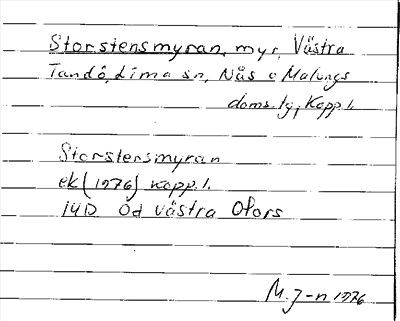 Storstensmyran, myr, Västra
Tandö, Lima sn, Nås o Malungs
doms. tg, Kopp. l.
Storstensmyran
ek (1976) Kopp. l.
14D Öd västra Ofors
M. J-n 1976